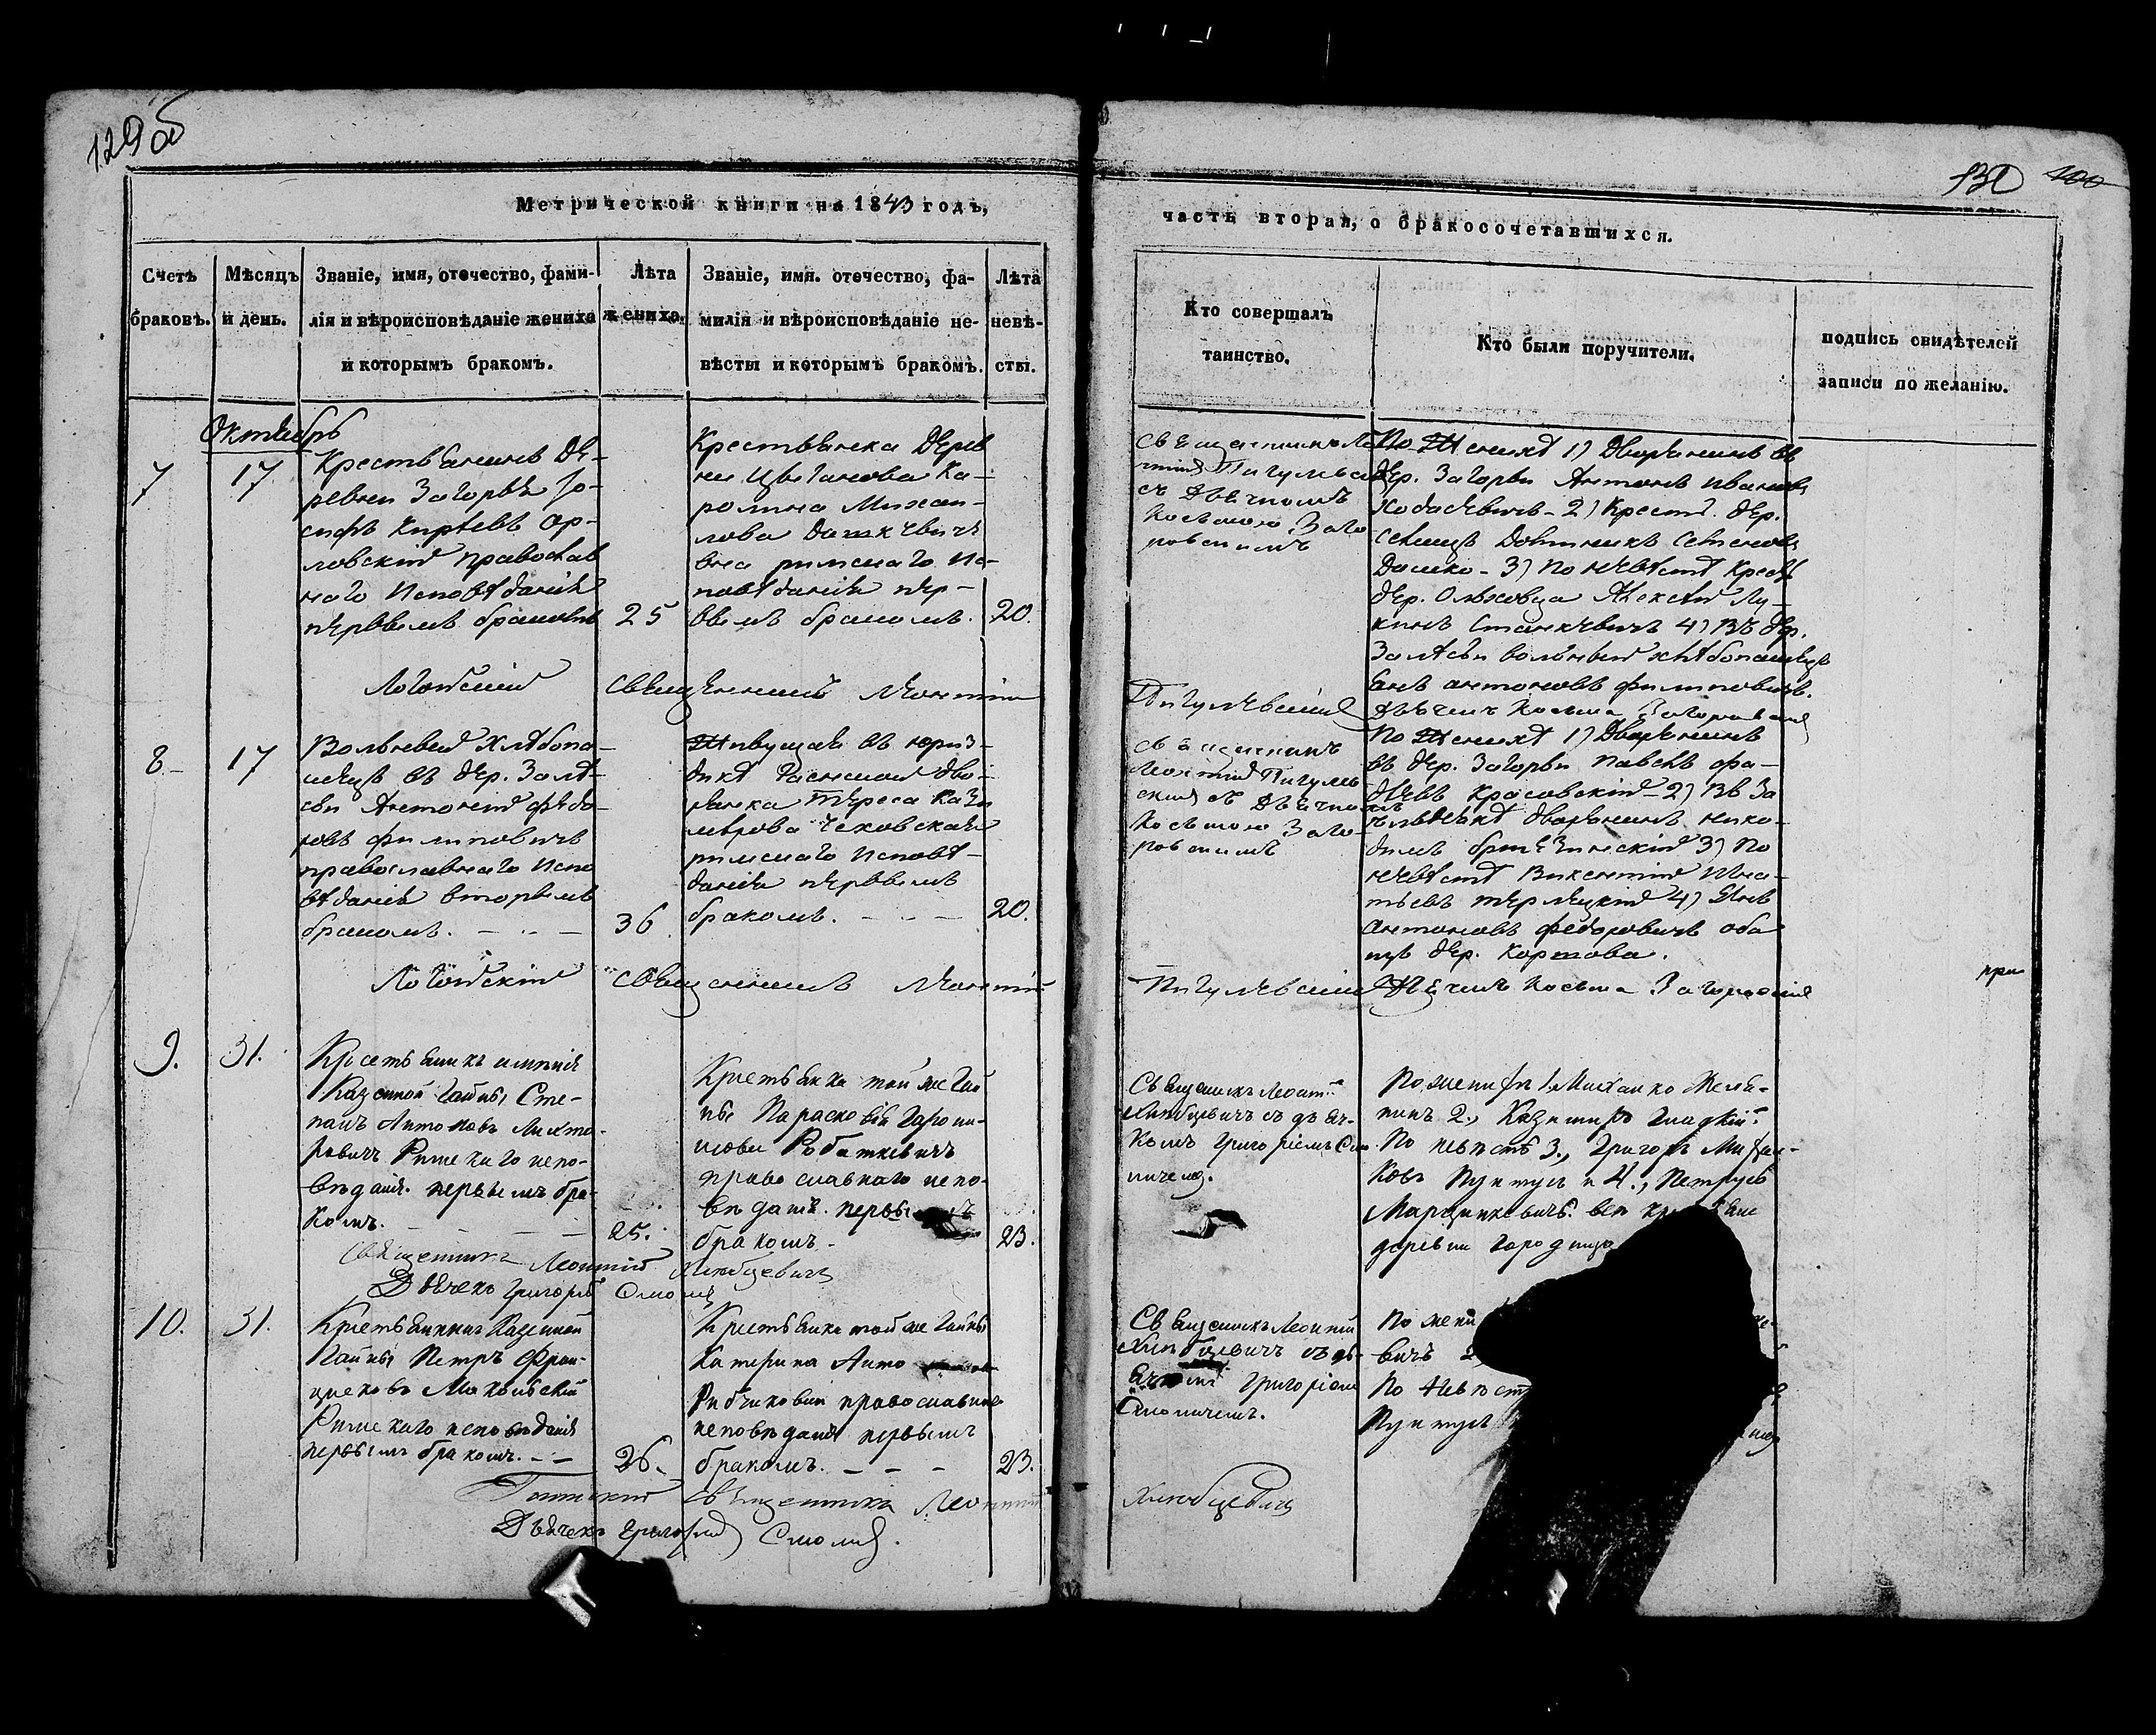 129 об
130 100
Метрической книги на 1843 годъ,
часть вторая, о бракосочетавшихся.
Счетъ браковъ.
Мѣсяцъ и день.
Званіе, имя, отечество, фами-
лія и вѣроисповѣданіе жениха
и которымъ бракомъ.
Лѣта
жениха.
Званіе, имя. отечество, фа-
милія и вѣроисповѣданіе не-
вѣсты и которымъ бракомъ.
Лѣта
невѣ-
сты.
Кто совершалъ
таинство.
Кто были поручители.
подпись свидѣтелей
записи по желанію.
Октябрь
7
17
Крестьянинъ де-
ревни Загорья Іо-
сифъ Карѣевъ Ор-
ловскій православ
наго исповѣданія
первымъ бракомъ
25
Крестьянка дерев
ни Цыганова Ка-
ролина Михаи-
лова Дашкевичъ
вна римскаго ис-
повѣданія пер-
вымъ бракомъ.
20.
Священникъ Ле
нтій Пигулевс
съ Дьячкомъ
Косьмою Заго
ровскимъ
По Женихѣ 1) Дворянинъ въ
дер. Загорьи Антонъ Ивановъ
Ходасевичъ - 2) Крест. дер.
Селищъ Довтникъ Семеновъ
Дашко - 3) По невѣстѣ Крест.
дер. Ольховца Алексѣй Лу-
кинъ Станкевичъ 4) Въ дер.
Залѣсьи вольный хлѣбопашецъ
Янъ Антоновъ Филиповичъ.
Логойскій Священникъ Леонтій
Пигулевскій
Дьячекъ Косьма Загоровскій
8-
17
Вольный хлѣбопа-
шецъ въ дер. Залѣ-
сьи Антоній Федо-
ровъ Филиповичъ
православнаго испо
вѣданія вторымъ
бракомъ. - .. -
36
Живущая въ юриз-
дикѣ Гаенской дво-
рянка Тереса Кази
мірова Чеховская
римскаго исповѣ-
данія первымъ
бракомъ. - .. -
20.
Священникъ
Леонтій Пигулев
скій съ Дьячко
Косьмою Заго
ровскимъ
По Женихѣ 1) Дворянинъ
въ дер. Загорьи Павелъ Фа-
дѣевъ Красовскій - 2) Въ За
дворянинъ Нико-
димъ 3) По
невѣстѣ Викентій Игна-
тьевъ Терлецкій 4) Янъ
Антоновъ Федоровичъ оба
изъ дер. Корпова.
Логойскій Священникъ Леонтій
Пигулевскій Дьячекъ Косьма Загоровскій
при
9.
31.
Крестьянинъ имѣнія
Казенной Гайны Сте-
панъ Антоновъ Лихта-
ровичъ Римскаго испо-
вѣданія. первымъ бра-
комъ. - - -
25.
Крестьянка той же Гай
ны Параскевія Гарони-
мова Робаткевичъ
православнаго испо-
вѣданія. первымъ
бракомъ -
23.
Священникъ Леонтій
Хлюбцевичъ съ дьяч-
комъ Григоріемъ Смо
личемъ.
По женихѣ 1. Михалко Желя-
пинъ 2., Казимиръ Гладкій.
По невѣстѣ 3., Григоръ Михал-
ковъ Пунтусъ и 4., Петрусь
Марцинкевичъ. всѣ
деревни Городища
Священникъ Леонтій Хлюбцевичъ
Дьячекъ Григорій Смоличъ
10.
31.
Крестьянинъ Казенной
Гайны Петръ Фран-
цисковъ Маковскій
Римскаго исповѣданія
первымъ бракомъ. - -
26.
Крестьянка той же Гайны
Катерина Анто
Рибчиковна православнаго
исповѣданія первымъ
бракомъ. - - -
23.
Священникъ Леонтій
Хлюбцевичъ съ дь-
ячкомъ Григоріемъ
Смоличемъ.
По жени
вичъ 2
По невѣст
Пунтусъ
Гаинскій Священникъ Леонтій
Хлюбцевичъ
Дьячекъ Григорій Смоличъ.